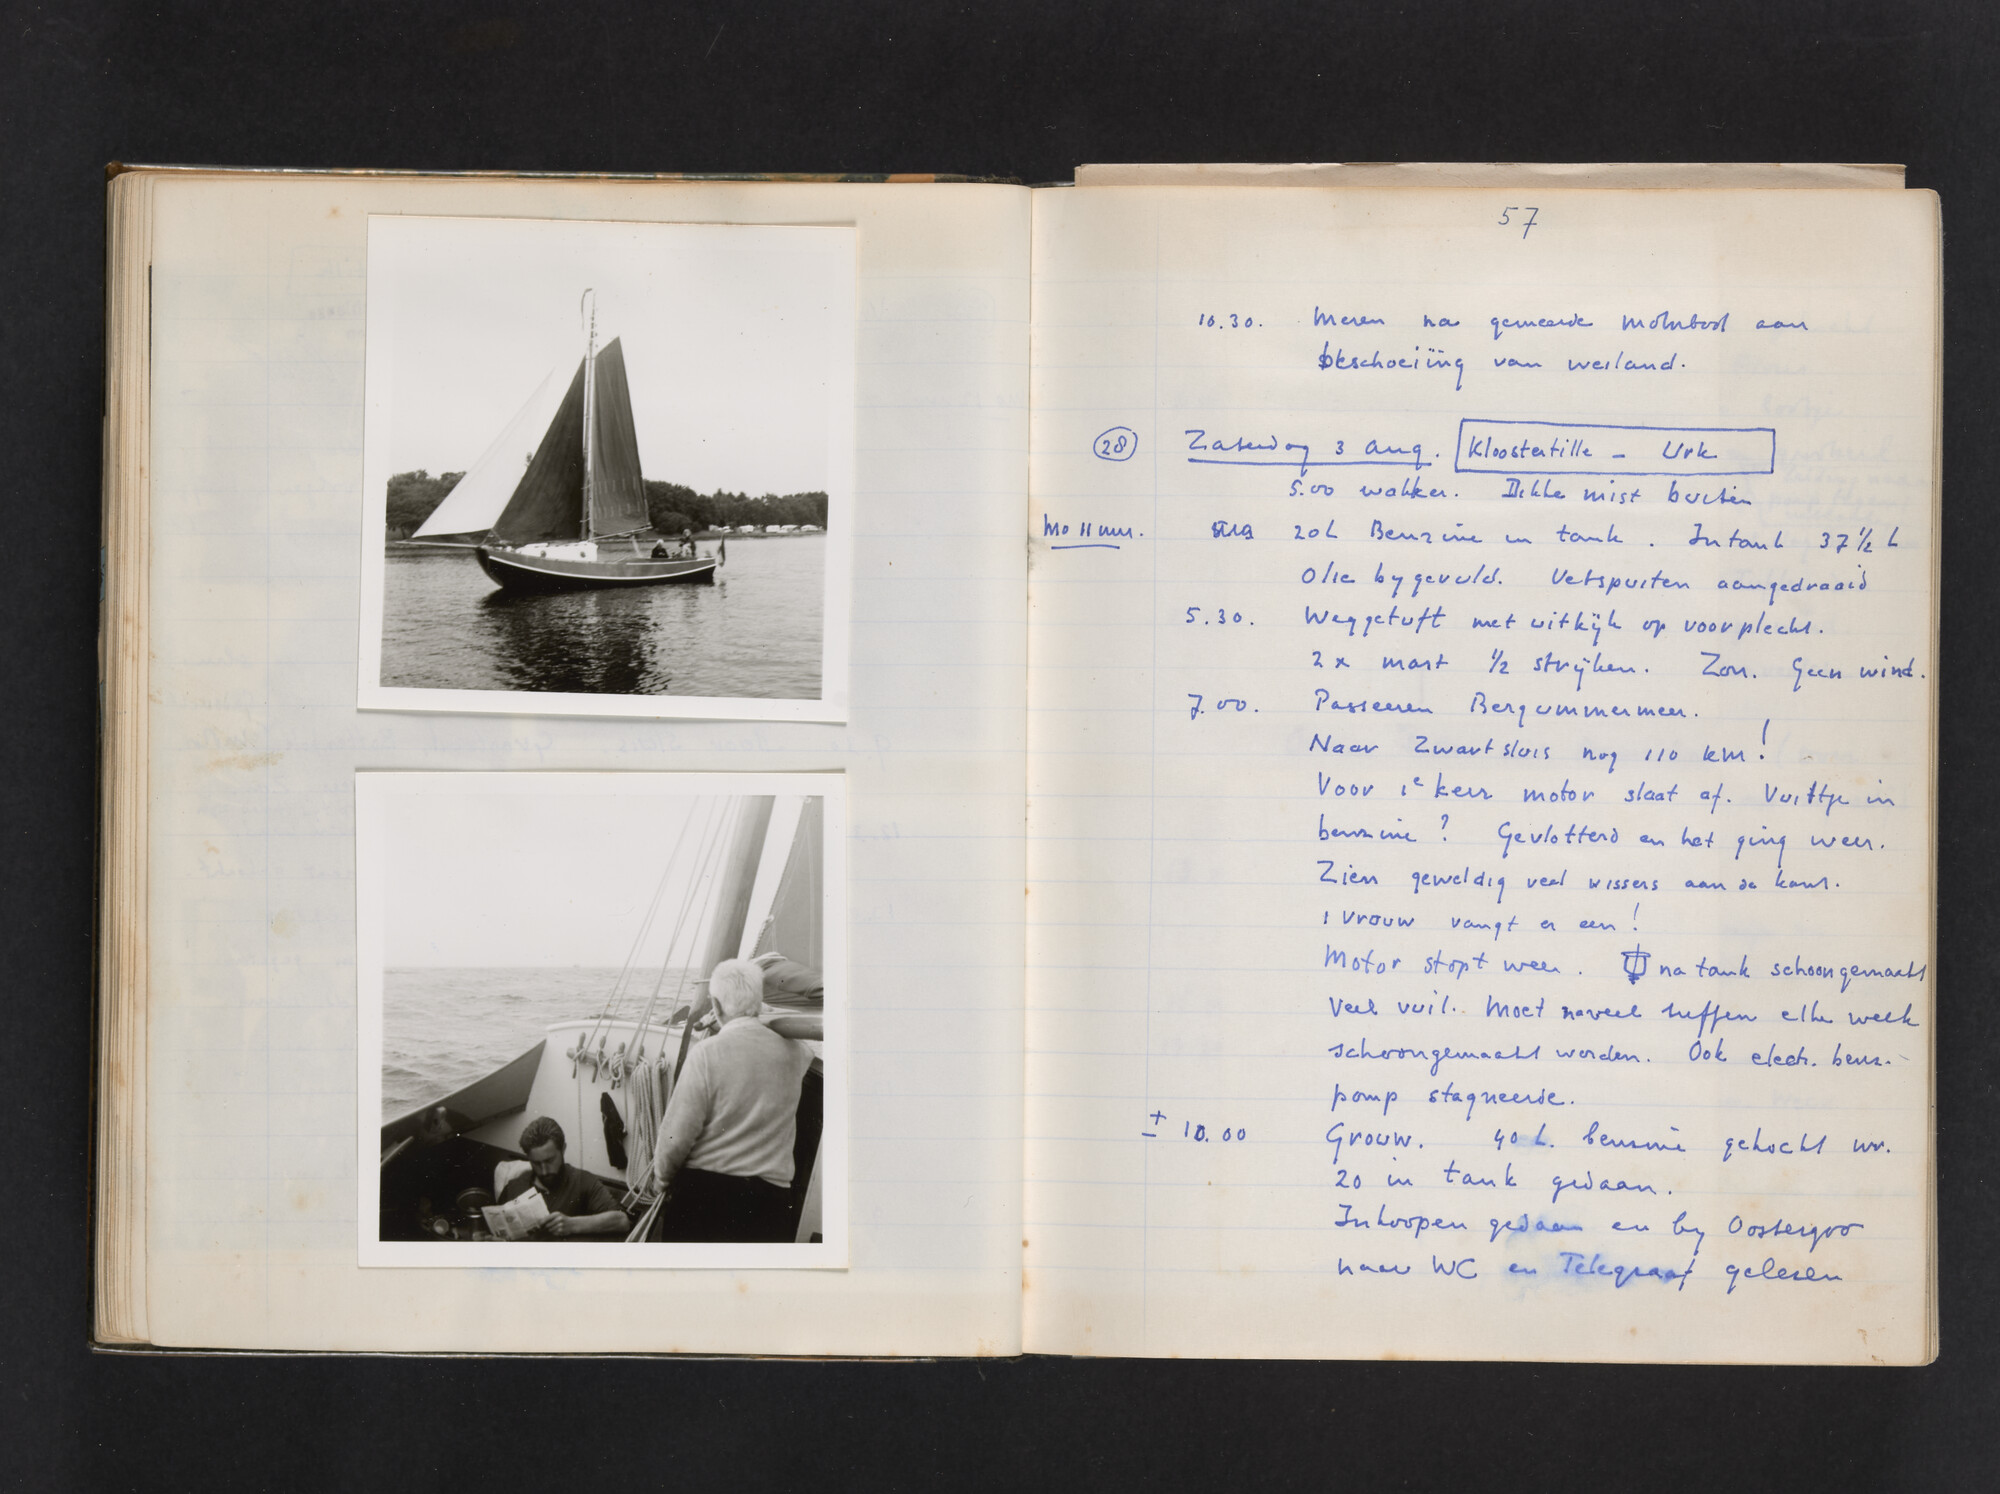 57
10.30. Meren na gemeerde motorboot aan
beschoeiïng van weiland.
28 Zaterdag 3 Aug. Kloostertille - Urk
5.00 wakker. Dikke mist buiten
Mo 11 uur. 20 L Benzine in tank. In tank 37 1/2 L
Olie bygevuld. Vetspuiten aangedraaid
5.30. Weggetuft met uitkijk op voorplecht.
2 x mast 1/2 strijken. Zon. Geen wind.
7.00. Passeeren Bergummermeer.
Naar Zwartsluis nog 110 km!
Voor 1e keer motor slaat af. Vuiltje in
benzine? Gevlotterd en het ging weer.
Zien geweldig veel vissers aan de kant.
1 vrouw vangt er een!
Motor stopt weer. na tank schoongemaakt
Veel vuil. Moet elke week
schoongemaakt worden. Ook electr. benz.-
pomp stagneerde.
± 10.00 Grouw. 40 L. benzine gekocht wv.
20 in tank gedaan.
Inkoopen gedaan en by Oostergoo
naar WC en Telegraaf gelezen